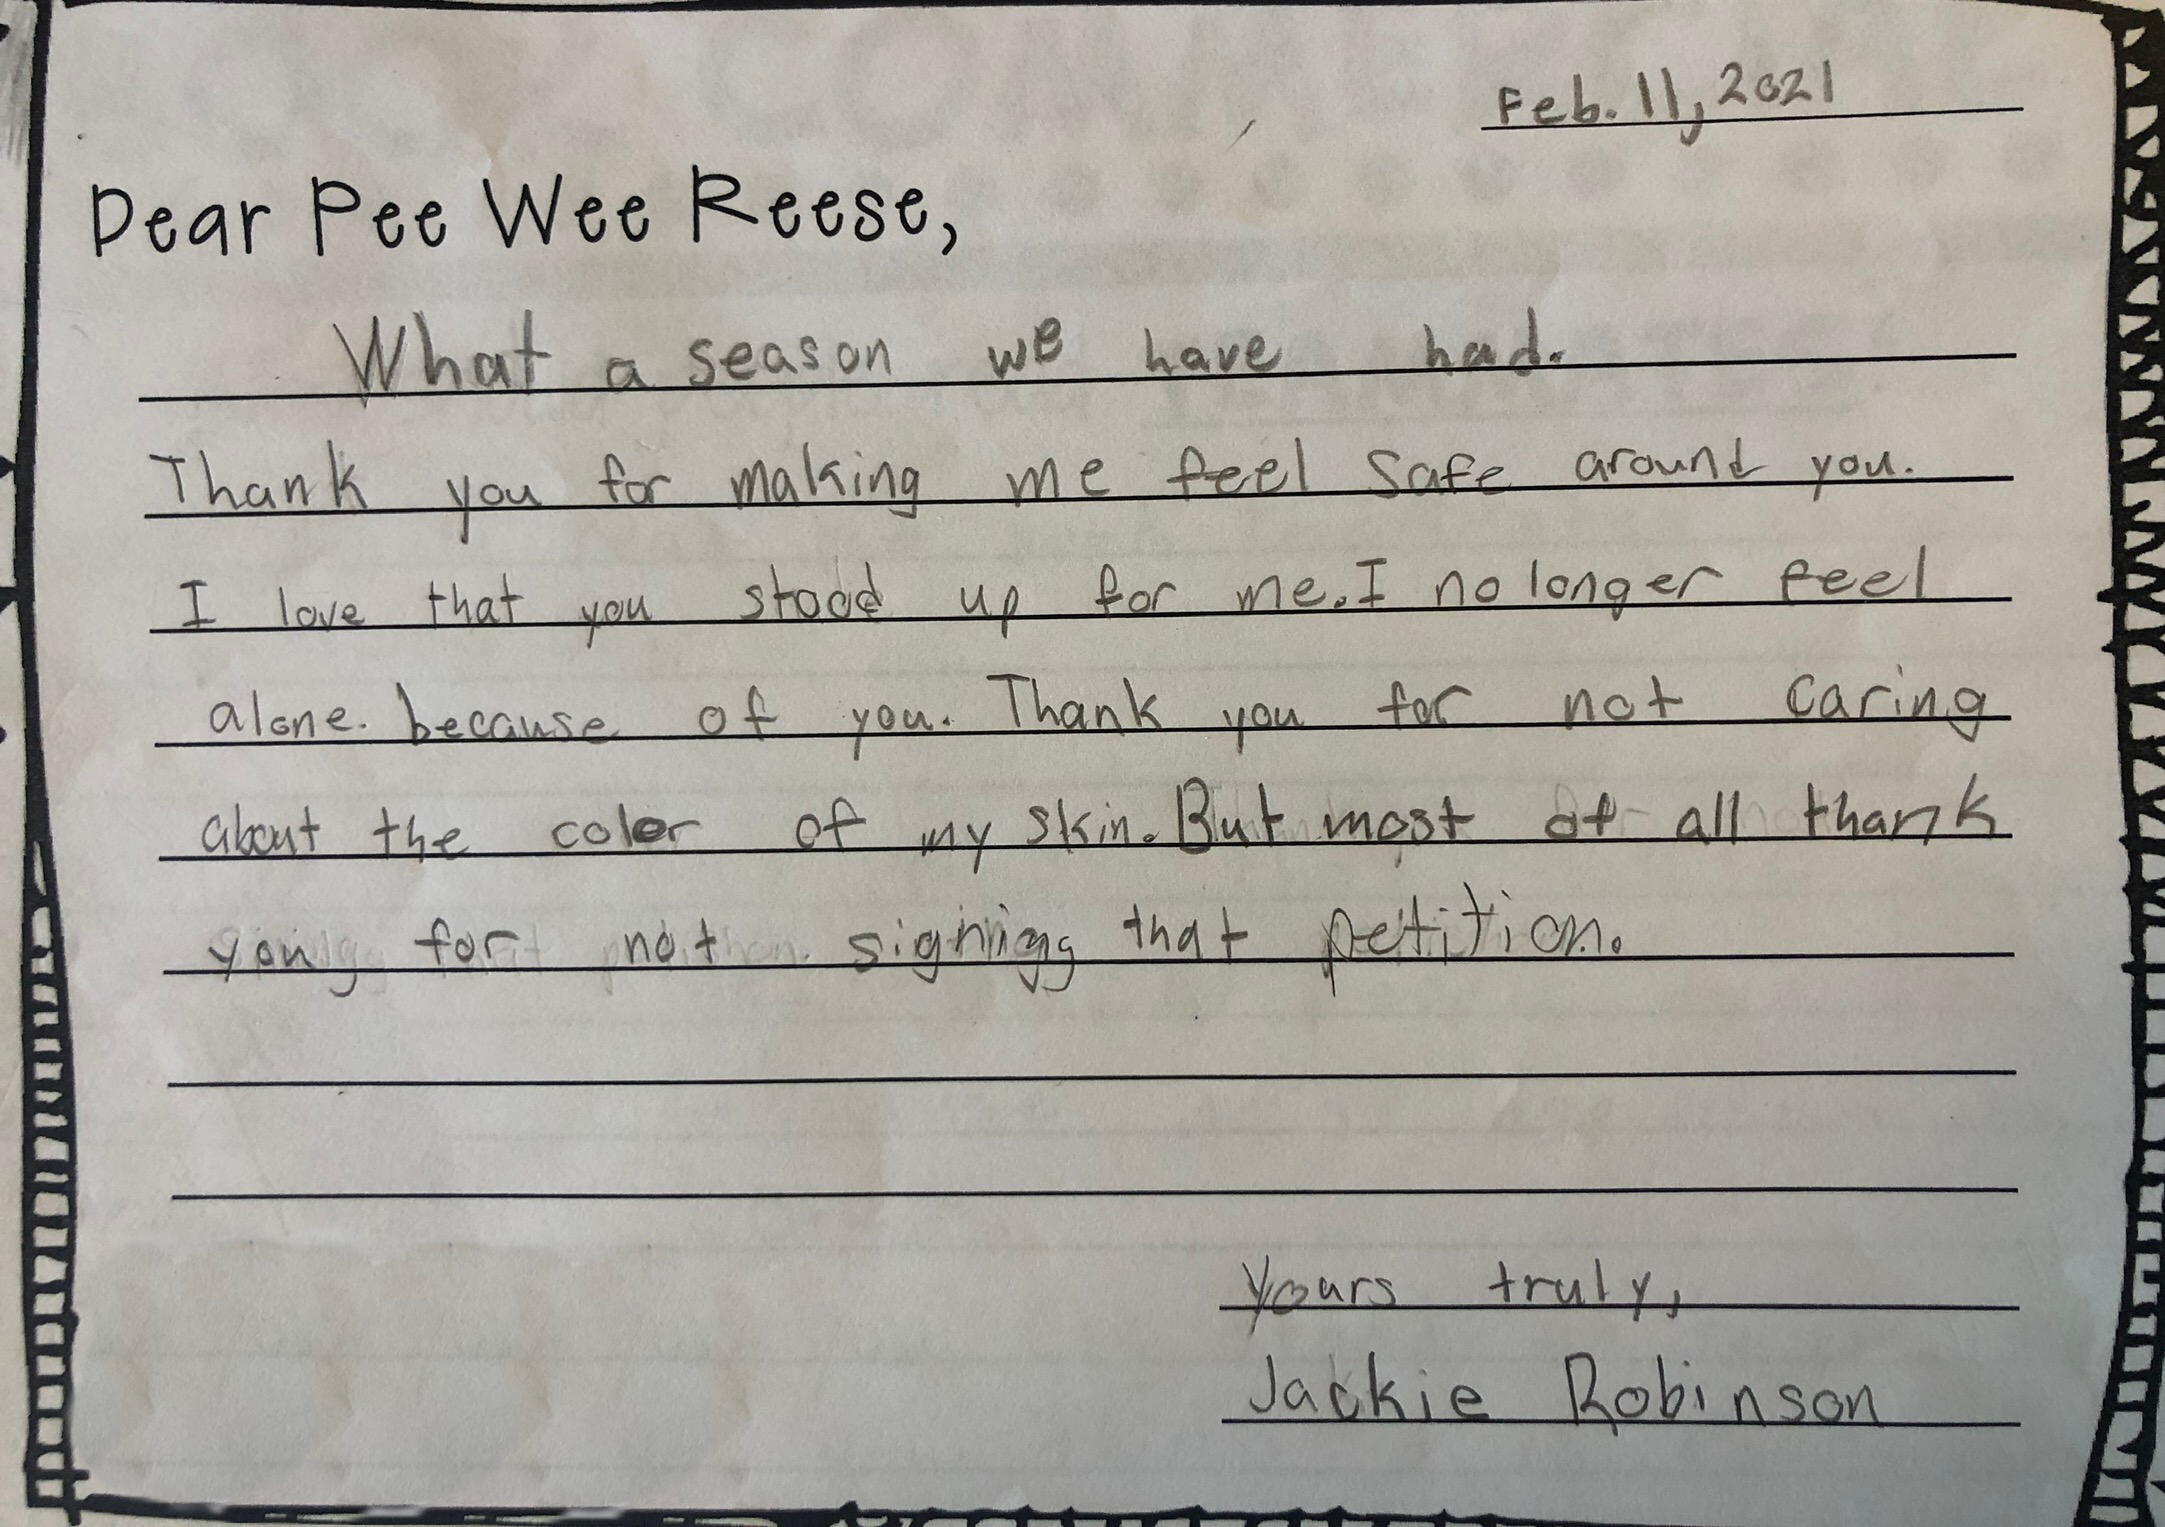 Feb. 11, 2021
Dear Pee Wee Reese,
What a season we have had.
Thank you for making me feel safe around you.
I love that you stood up for me. I no longer feel
alone. because of you. Thank you for not caring
about the color of my skin. But most of all thank
you for not signing that petition.
Yours truly,
Jackie Robinson